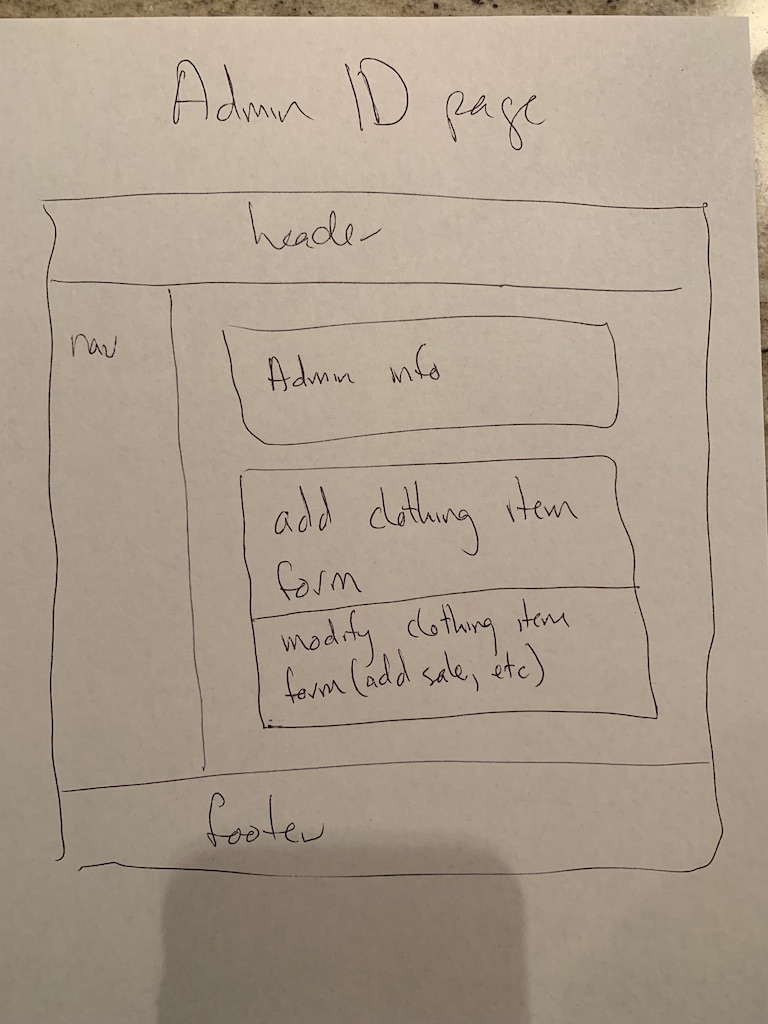 Admin ID page
header
nav
Admin info
add clothing item
form
modify clothing item
form (add sale, etc)
footer